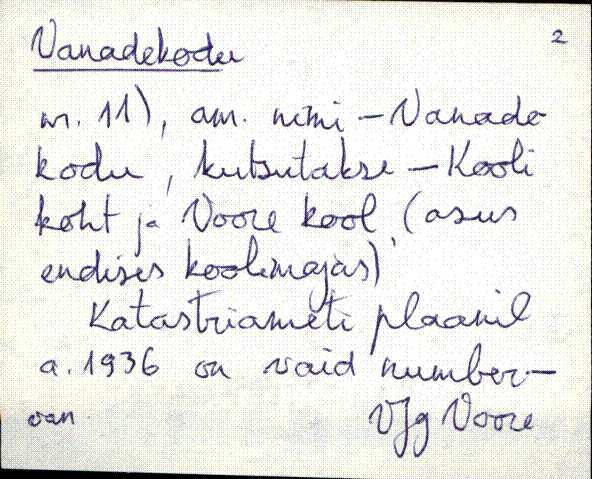 Vanadekodu 2
nr. 11), am. nimi – Vanade
kodu, kutsutakse – Kooli
koht ja Voore kool (asus
endises koolimajas)
Katastriameti plaanil
a. 1936 on vaid number –
van VJg Voore